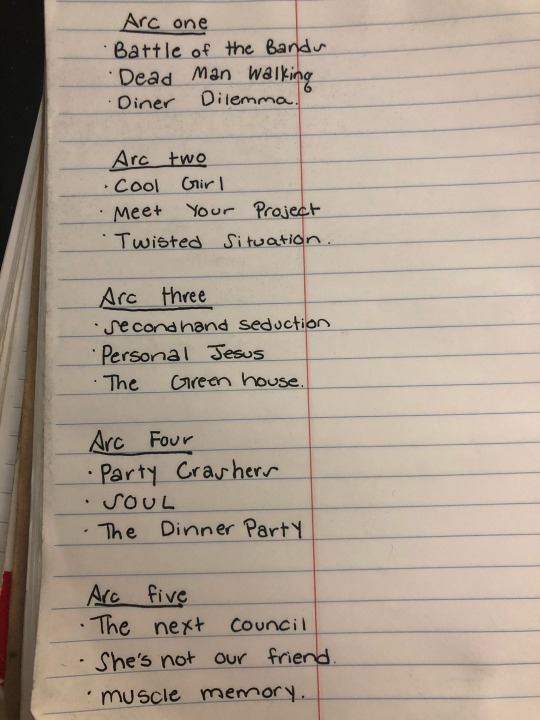 Arc one
· Battle of the Bands
· Dead Man Walking
· Diner Dilemma.
Arc two
· Cool Girl
· Meet Your Project
· Twisted Situation.
Arc three
· secondhand seduction
· Personal Jesus
· The Green house.
Arc Four
· Party Crashers
· SOUL
· The Dinner Party
Arc five
· The next council
· She's not our friend.
· muscle memory.